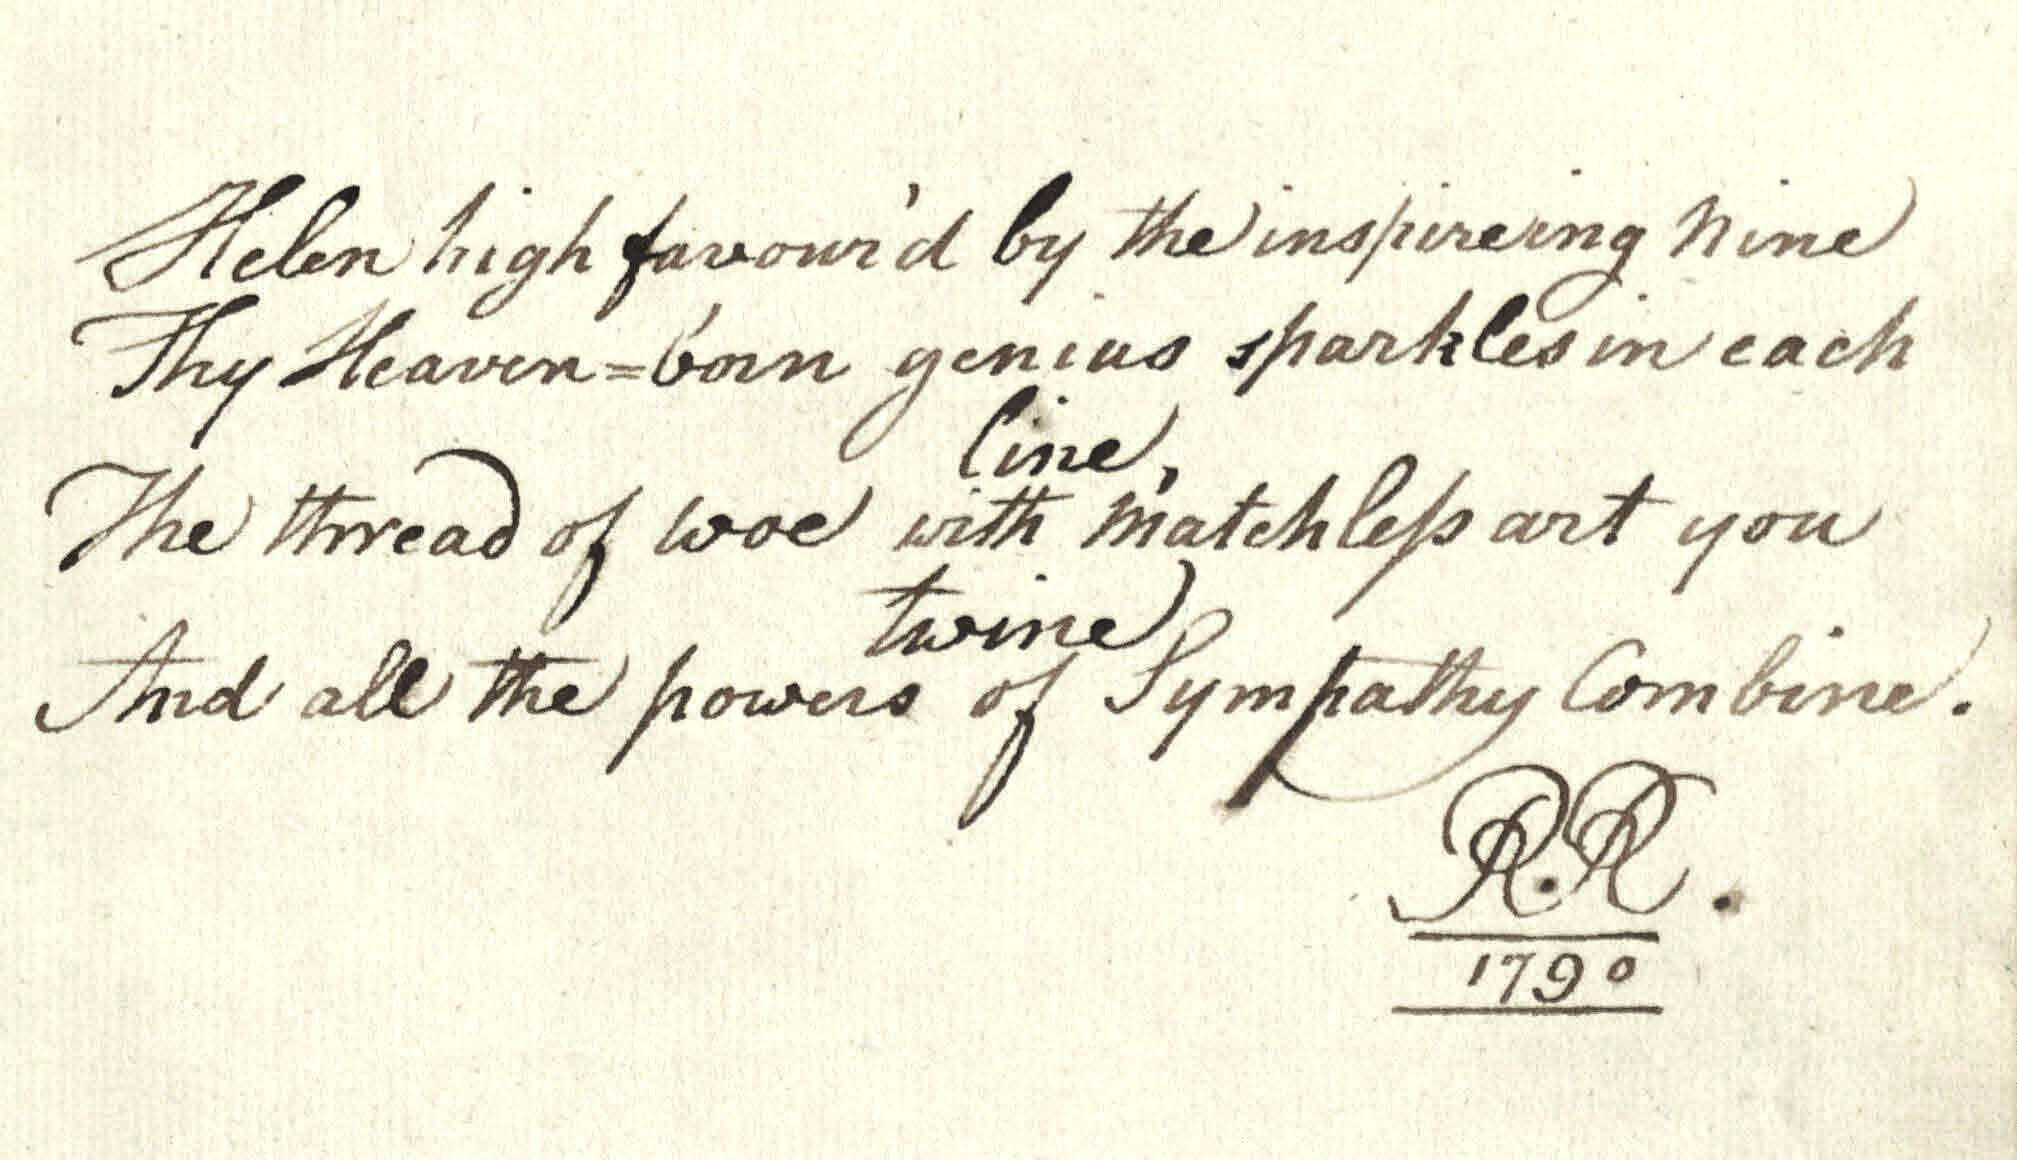 Helen high favour'd by the inspireing Nine
Thy Heaven=born genius sparkles in each
line,
The thread of woe with Matchless art you
twine
And all the powers of Sympathy Combine.
R.R.
1790